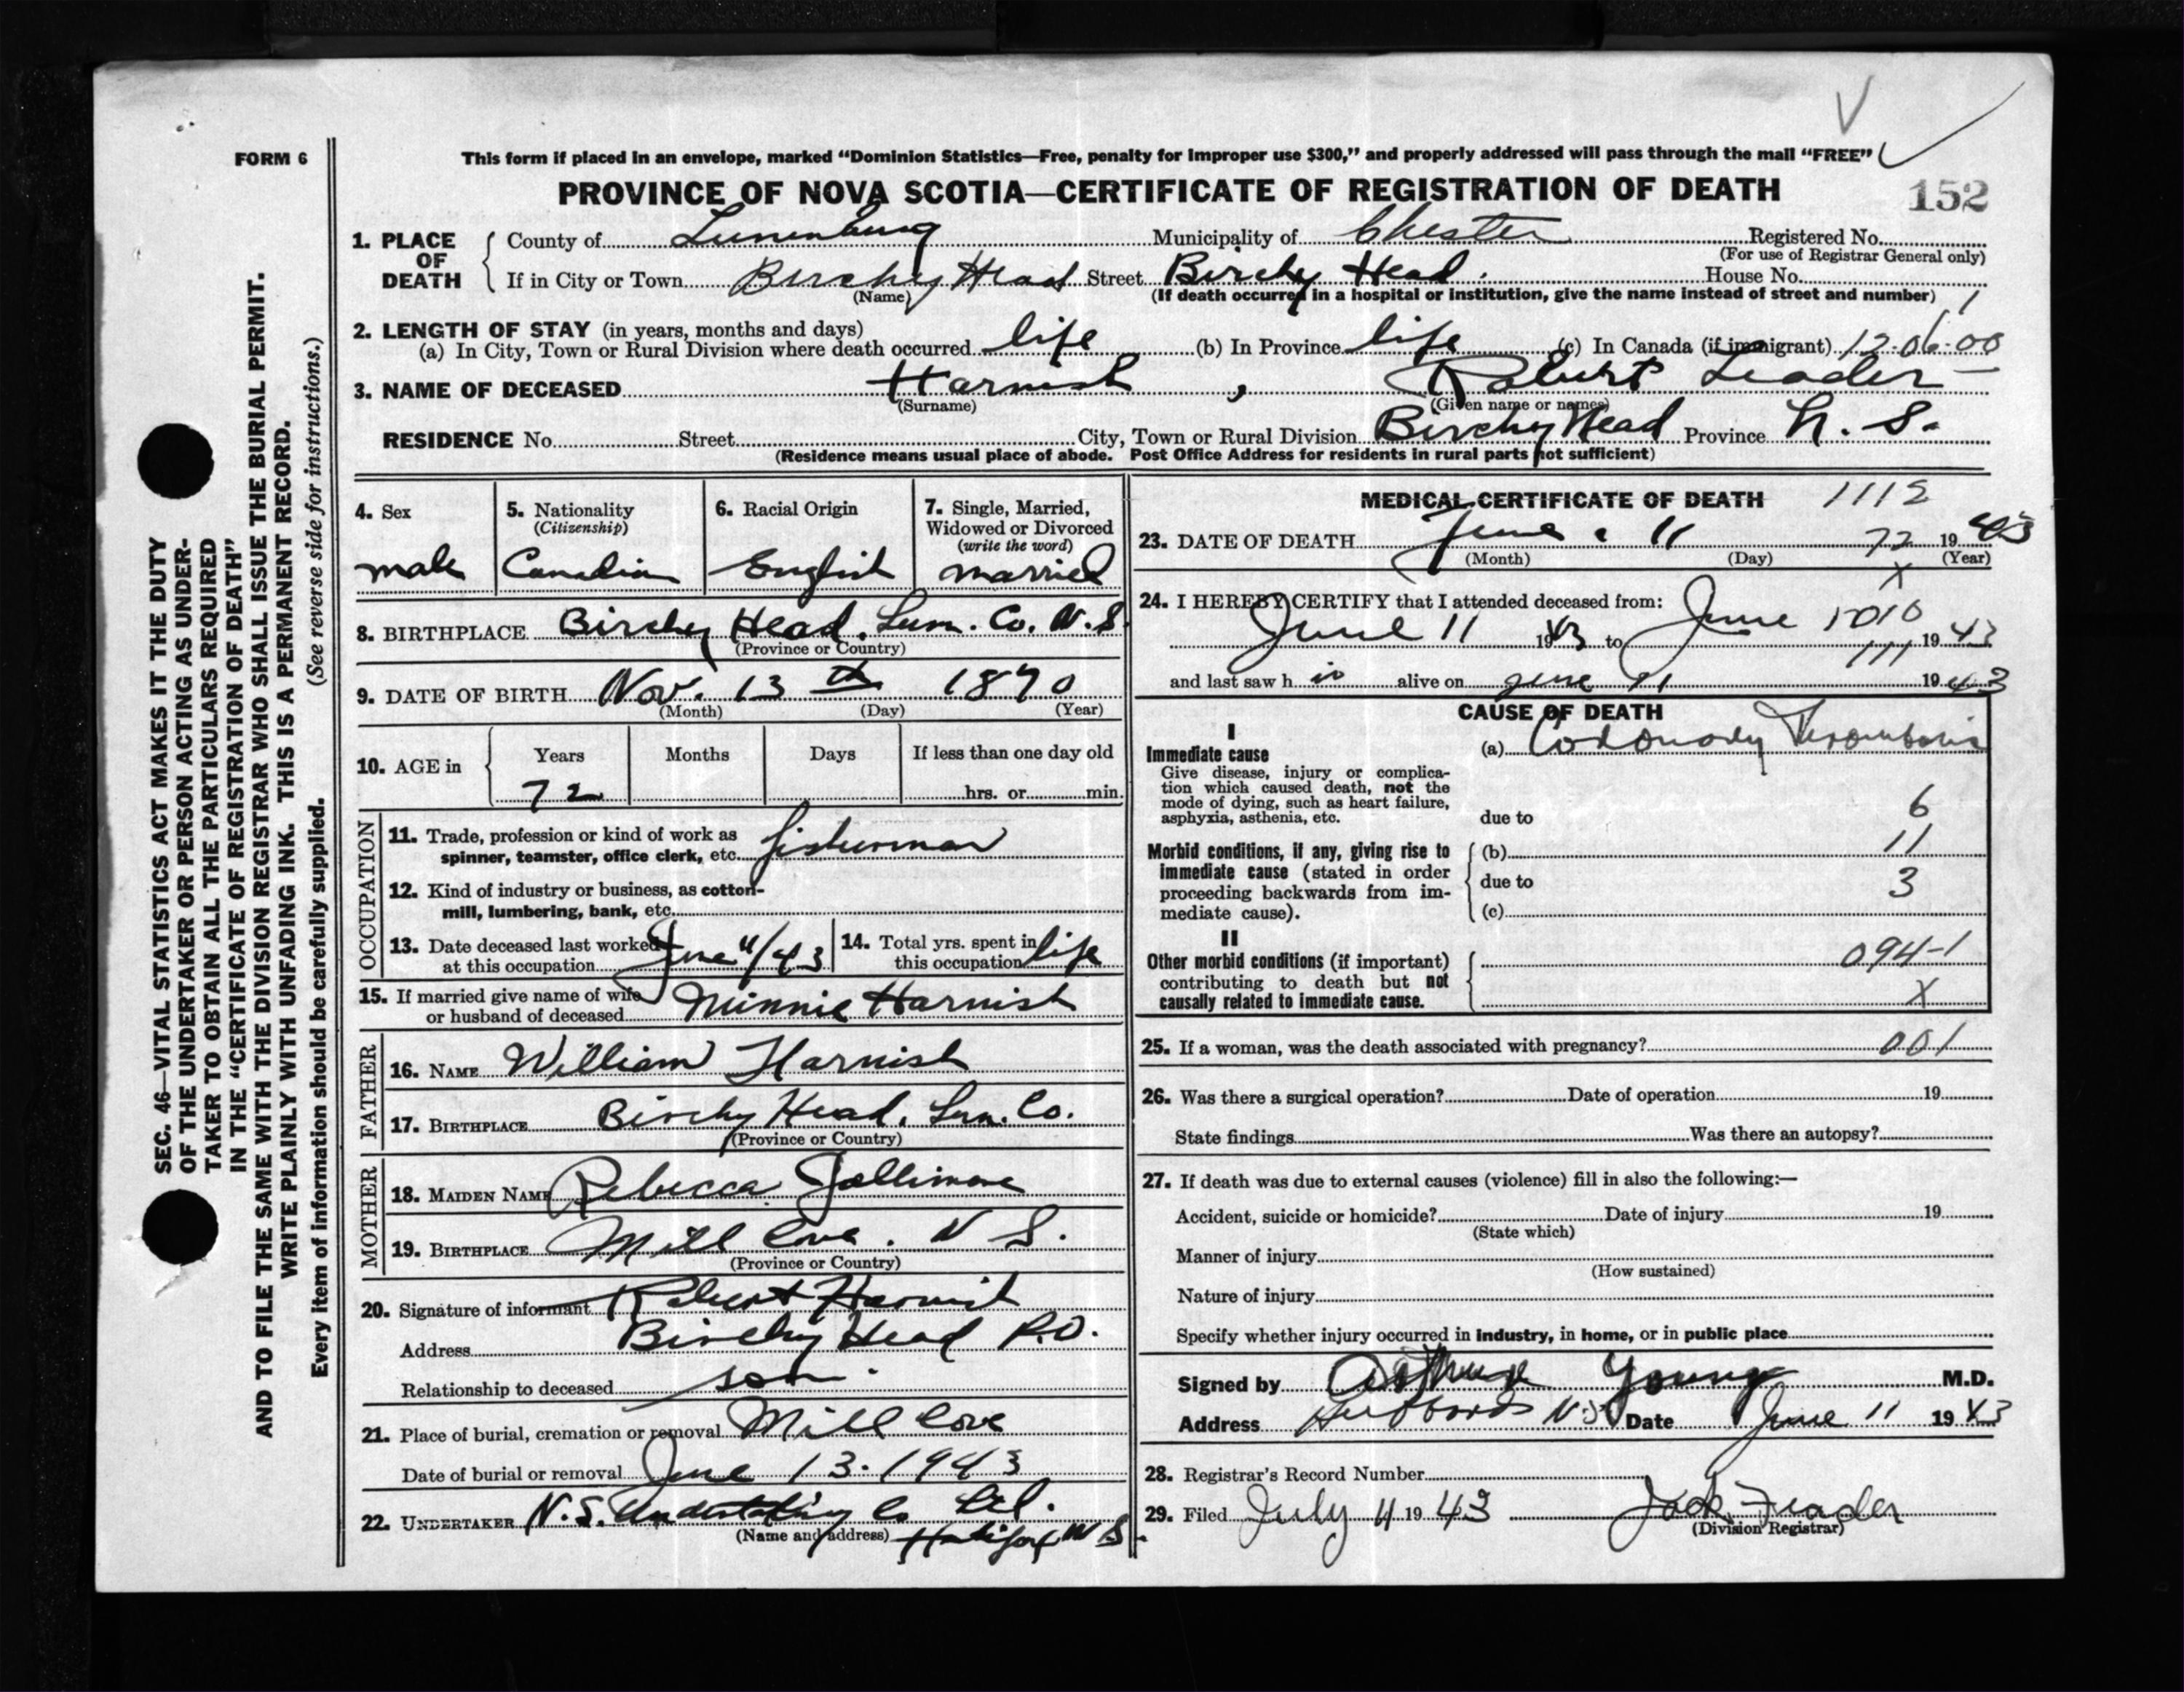 FORM 6
This form if placed in an envelope, marked “Dominion Statistics—Free, penalty for improper use $300,” and properly addressed will pass through the mail “FREE”
PROVINCE OF NOVA SCOTIA—CERTIFICATE OF REGISTRATION OF DEATH
152
1. PLACE OF DEATH
County of Lunenburg Municipality of Chester Registered No.
(For use of Registrar General only)
If in City or Town Birchy Head Street Birchy Head. House No.
(Name) (If death occurred in a hospital or institution, give the name instead of street and number)
2. LENGTH OF STAY (in years, months and days)
(a) In City, Town or Rural Division where death occurred life (b) In Province life (c) In Canada (if immigrant) 12-06-00
3. NAME OF DECEASED Harnish , Robert Leader
(Surname) (Given name or names)
RESIDENCE No. Street City, Town or Rural Division Birchy Head Province N. S.
(Residence means usual place of abode. Post Office Address for residents in rural parts not sufficient)
4. Sex
male
5. Nationality
(Citizenship)
Canadian
6. Racial Origin
English
7. Single, Married,
Widowed or Divorced
(write the word)
married
8. BIRTHPLACE Birchy Head. Lun. Co. N.S
(Province or Country)
9. DATE OF BIRTH Nov. 13 th 1870
(Month) (Day) (Year)
10. AGE in
Years Months Days If less than one day old
72 hrs. or min.
OCCUPATION
11. Trade, profession or kind of work as
spinner, teamster, office clerk, etc. fisherman
12. Kind of industry or business, as cotton-
mill, lumbering, bank, etc.
13. Date deceased last worked
at this occupation June 11/43
14. Total yrs. spent in
this occupation life
15. If married give name of wife
or husband of deceased Minnie Harnish
FATHER
16. NAME William Harnish
17. BIRTHPLACE Birchy Head. Lun. Co.
(Province or Country)
MOTHER
18. MAIDEN NAME Rebecca Jollimore
19. BIRTHPLACE Mill Cove. N S.
(Province or Country)
20. Signature of informant Robert Harnish
Address Birchy Head P.O.
Relationship to deceased son.
21. Place of burial, cremation or removal Mill Cove
Date of burial or removal June 13. 1943
22. UNDERTAKER N.S. Undertaking Co Ltd.
(Name and address) Halifax N S.
MEDICAL CERTIFICATE OF DEATH 1112
23. DATE OF DEATH June 11 72 1943
(Month) (Day) (Year)
x
24. I HEREBY CERTIFY that I attended deceased from:
June 11 1943 to June 1943
and last saw h alive on June 11 1943
CAUSE OF DEATH
I
Immediate cause
Give disease, injury or complica-
tion which caused death, not the
mode of dying, such as heart failure,
asphyxia, asthenia, etc.
(a) Coronary Thrombosis
6
due to
Morbid conditions, if any, giving rise to
immediate cause (stated in order
proceeding backwards from im-
mediate cause).
(b) 11
due to 3
(c)
II
Other morbid conditions (if important)
contributing to death but not
causally related to immediate cause.
094-1
X
25. If a woman, was the death associated with pregnancy? 001
26. Was there a surgical operation? Date of operation 19
State findings Was there an autopsy?
27. If death was due to external causes (violence) fill in also the following:—
Accident, suicide or homicide? Date of injury 19
(State which)
Manner of injury
(How sustained)
Nature of injury
Specify whether injury occurred in industry, in home, or in public place
Signed by Arthur Young M.D.
Address Hubbards N.S. Date June 11 1943
28. Registrar's Record Number
29. Filed July 4 1943 Jack Feader
(Division Registrar)
SEC. 46—VITAL STATISTICS ACT MAKES IT THE DUTY
OF THE UNDERTAKER OR PERSON ACTING AS UNDER-
TAKER TO OBTAIN ALL THE PARTICULARS REQUIRED
IN THE “CERTIFICATE OF REGISTRATION OF DEATH”
AND TO FILE THE SAME WITH THE DIVISION REGISTRAR WHO SHALL ISSUE THE BURIAL PERMIT.
WRITE PLAINLY WITH UNFADING INK. THIS IS A PERMANENT RECORD.
Every item of information should be carefully supplied. (See reverse side for instructions.)